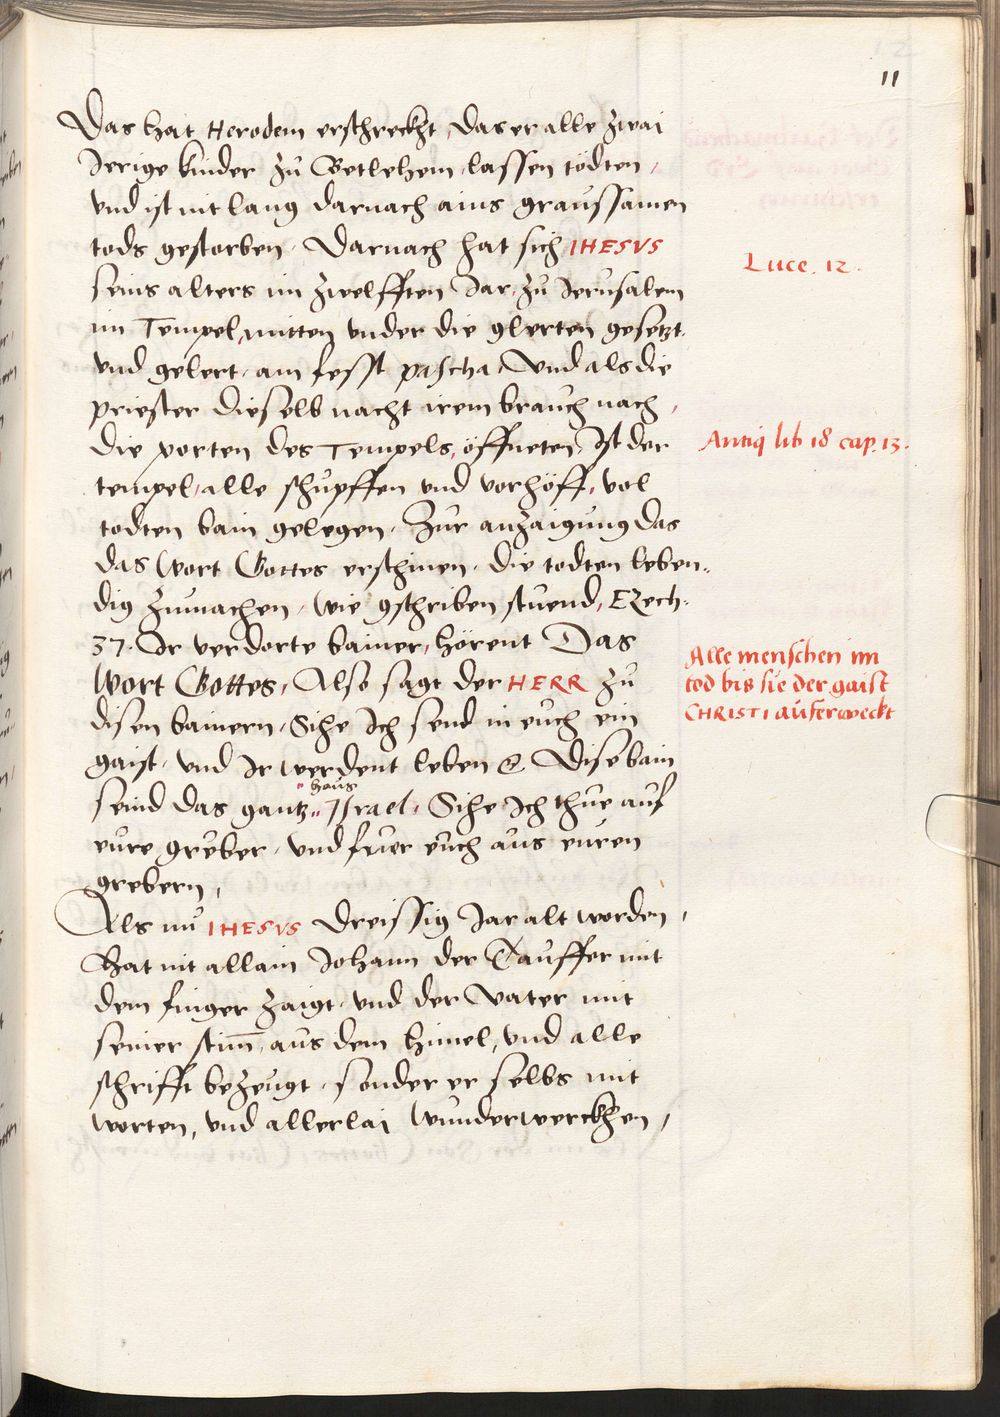 11
Das hat Herodem erschreckht, Das er alle zwai
Jerige kinder zů Betlehem, lassen tödten,
vnd ist nit lang darnach ains graussamen
tods gestorben. Darnach hat sich IHESVS
seins alters im zwelfften Jar, zů Jerusalem
im Tempel, mitten vnder die glerten gesetzt.
vnd gelert, am fesst pascha. Vnd als die
priester dieselb nacht irem braůch nach,
die porten des Tempels, öffneten, Ist der
tempel, alle schůpffen vnd vorhöff, vol
todten bain gelegen. Zůr anzaigůng das
das Wort Gottes erschinen, die todten leben-
dig zůmachen, wie gschriben stuend, EZech:
37. Ir verdorte bainer, hörent Das
Wort Gottes, Also sagt der HERR zů
disen bainern, Sihe Ich send in eůch ein
gaist, vnd Ir werdent leben &. Dise bain
haus
seind das gantz Israel. Sihe Ich thůe auf
eure greber, vnd fuer eůch aůs euren
grebern,
Als nů IHESVS Dreissig Jar alt worden,
Hat nit allain Johann der Tauffer mit
dem finger zaigt, vnd der Vater mit
seiner stim̄, aůs dem himel, vnd alle
schrifft bezeugt, sonder er selbs mit
worten, vnd allerlai Wůnderwerckhen,
Luce. 12.
Antiq lib 18 cap. 13.
Alle menschen im
tod bis sie der gaist
CHRISTI aůferweckt